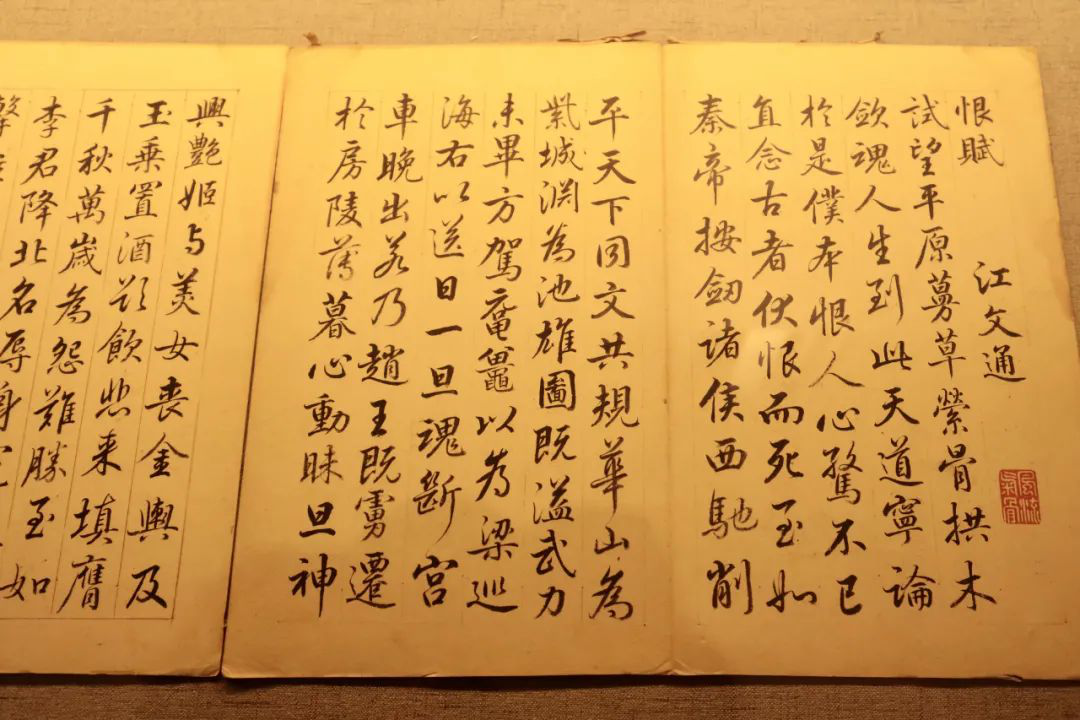 恨賦 江文通
試望平原蔓草縈骨拱木
歛魂人生到此天道寧論
於是僕本恨人心驚不已
直念古者伏恨而死至如
秦帝按劒諸侯西馳削
平天下同文共規華山為
紫城淵為池雄圖既溢武力
未畢方駕黿鼉以為梁巡
海右以送日一旦魂斷宮
車晚出若乃趙王既虜遷
於房陵薄暮心動昧旦神
興艷姬与美女喪金輿及
玉乗置酒欲飲悲来填膺
千秋萬歳為怨難勝至如
李君降北名辱身冤